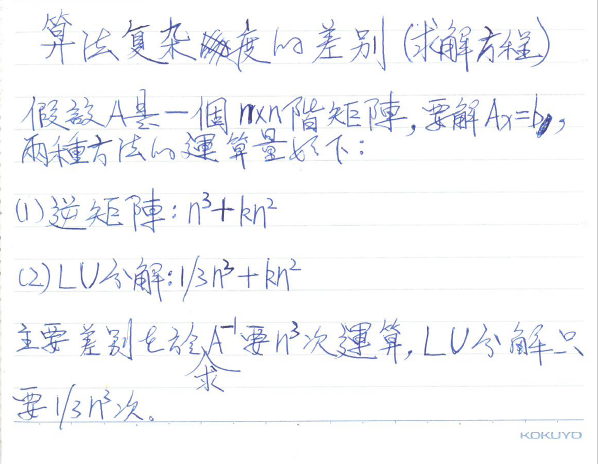 算法复杂度的差别(求解方程)
假設A是一個n×n階矩陣,要解Ax=b,
兩種方法的運算量如下:
(1)逆矩陣:n³+kn²
(2)LU分解:1/3n³+kn²
主要差别在於求A⁻¹要n³次運算,LU分解只
要1/3n³次。
KOKUYO